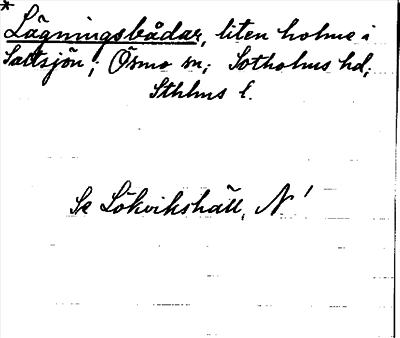 *
Lägningsbådar, liten holme i
Saltsjön; Ösmo sn; Sotholms hd;
Sthlms l.
Se Lökvikshäll, N'